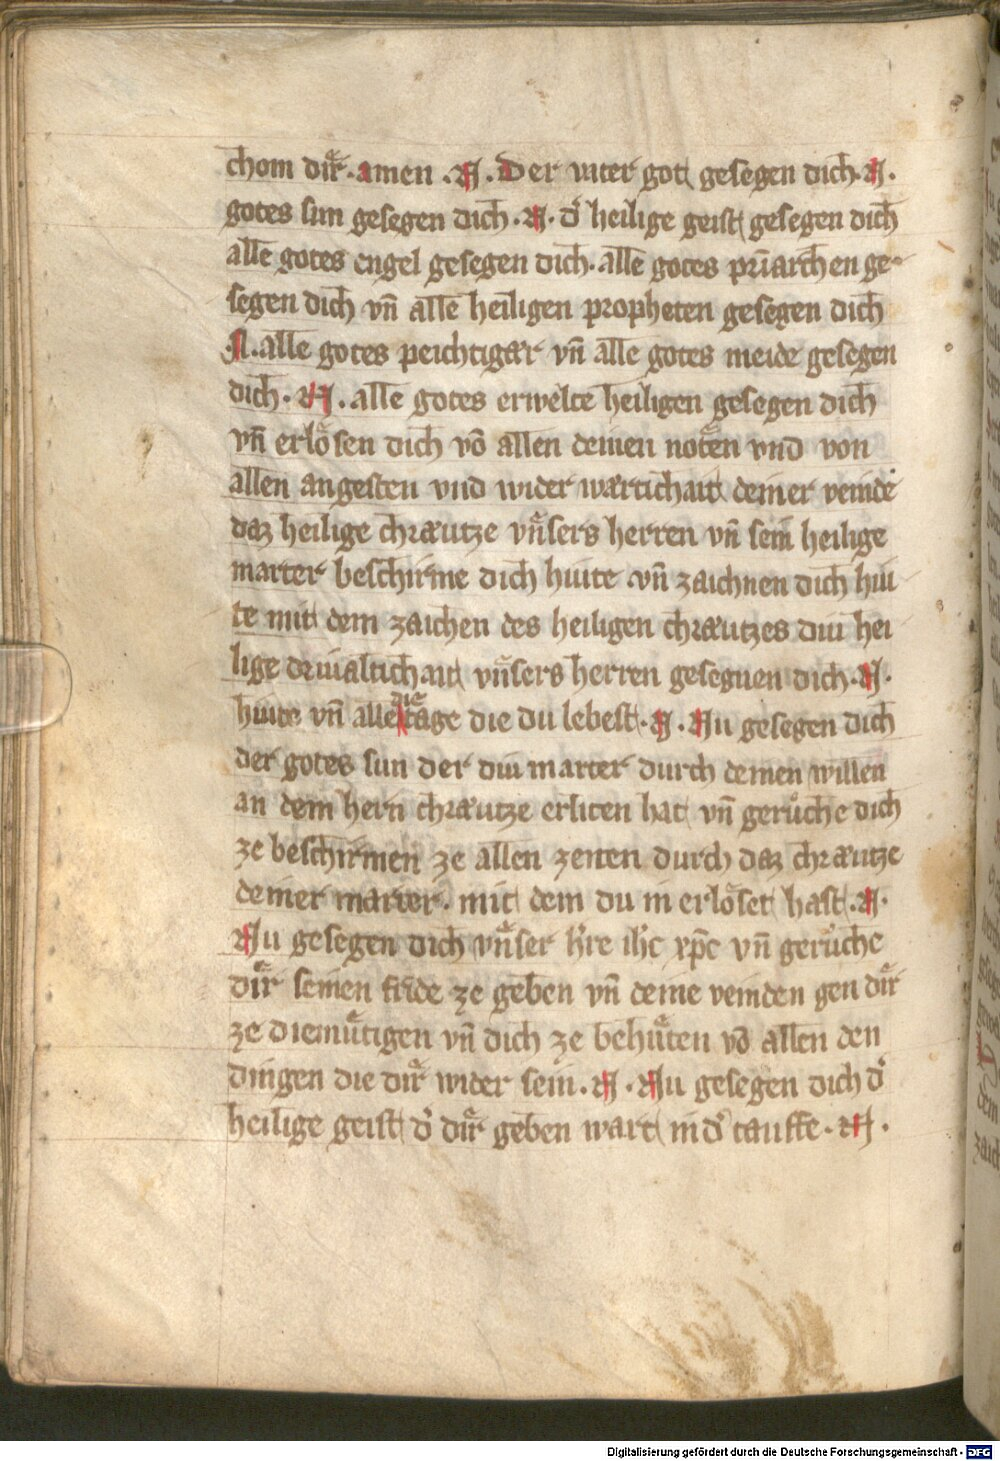 chom diͤr. amen .N. Der vater got gesegen dich .N.
gotes sun gesegen dich .N. d͛ heilige geist gesegen dich
alle gotes engel gesegen dich. alle gotes pr̄iarchen ge
segen dich vn̄ alle heiligen propheten gesegen dich
.N. alle gotes peichtigær vn̄ alle gotes meide gesegen
dich .N. alle gotes erwelte heiligen gesegen dich
vn̄ erloͤsen dich vō allen deinen noͤten vnd von
allen angesten vnd wider wærtichait deiner veinde
daz heilige chræutze vnͤsers herren vn̄ sein heilige
marter beschirme dich hiute vn̄ zaichnen dich hiu
te mit dem zaichen des heiligen chræutzes diu hei
lige driualtichait vnͤsers herren gesegnen dich .N.
hiute vn̄ alle die tage die du lebest .N. Nu gesegen dich
der gotes sun der diu marter durch deinen willen
an dem hern chræutze erliten hat vn̄ geruͦche dich
ze beschirmen ze allen zeiten durch daz chræutze
deiner marter. mit dem du in erloͤset hast .N.
Nu gesegen dich vnͤser h͛re ih̄c xp̄c vn̄ geruͦche
diͤr seinen fride ze geben vn̄ deine veinden gen diͤr
ze diemuͤtigen vn̄ dich ze behuͤten vō allen den
dingen die diͤr wider sein .N. Nu gesegen dich d͛
heilige geist d͛ diͤr geben wart in d͛ tauffe .N.
Digitalisierung gefördert durch die Deutsche Forschungsgemeinschaft - DFG